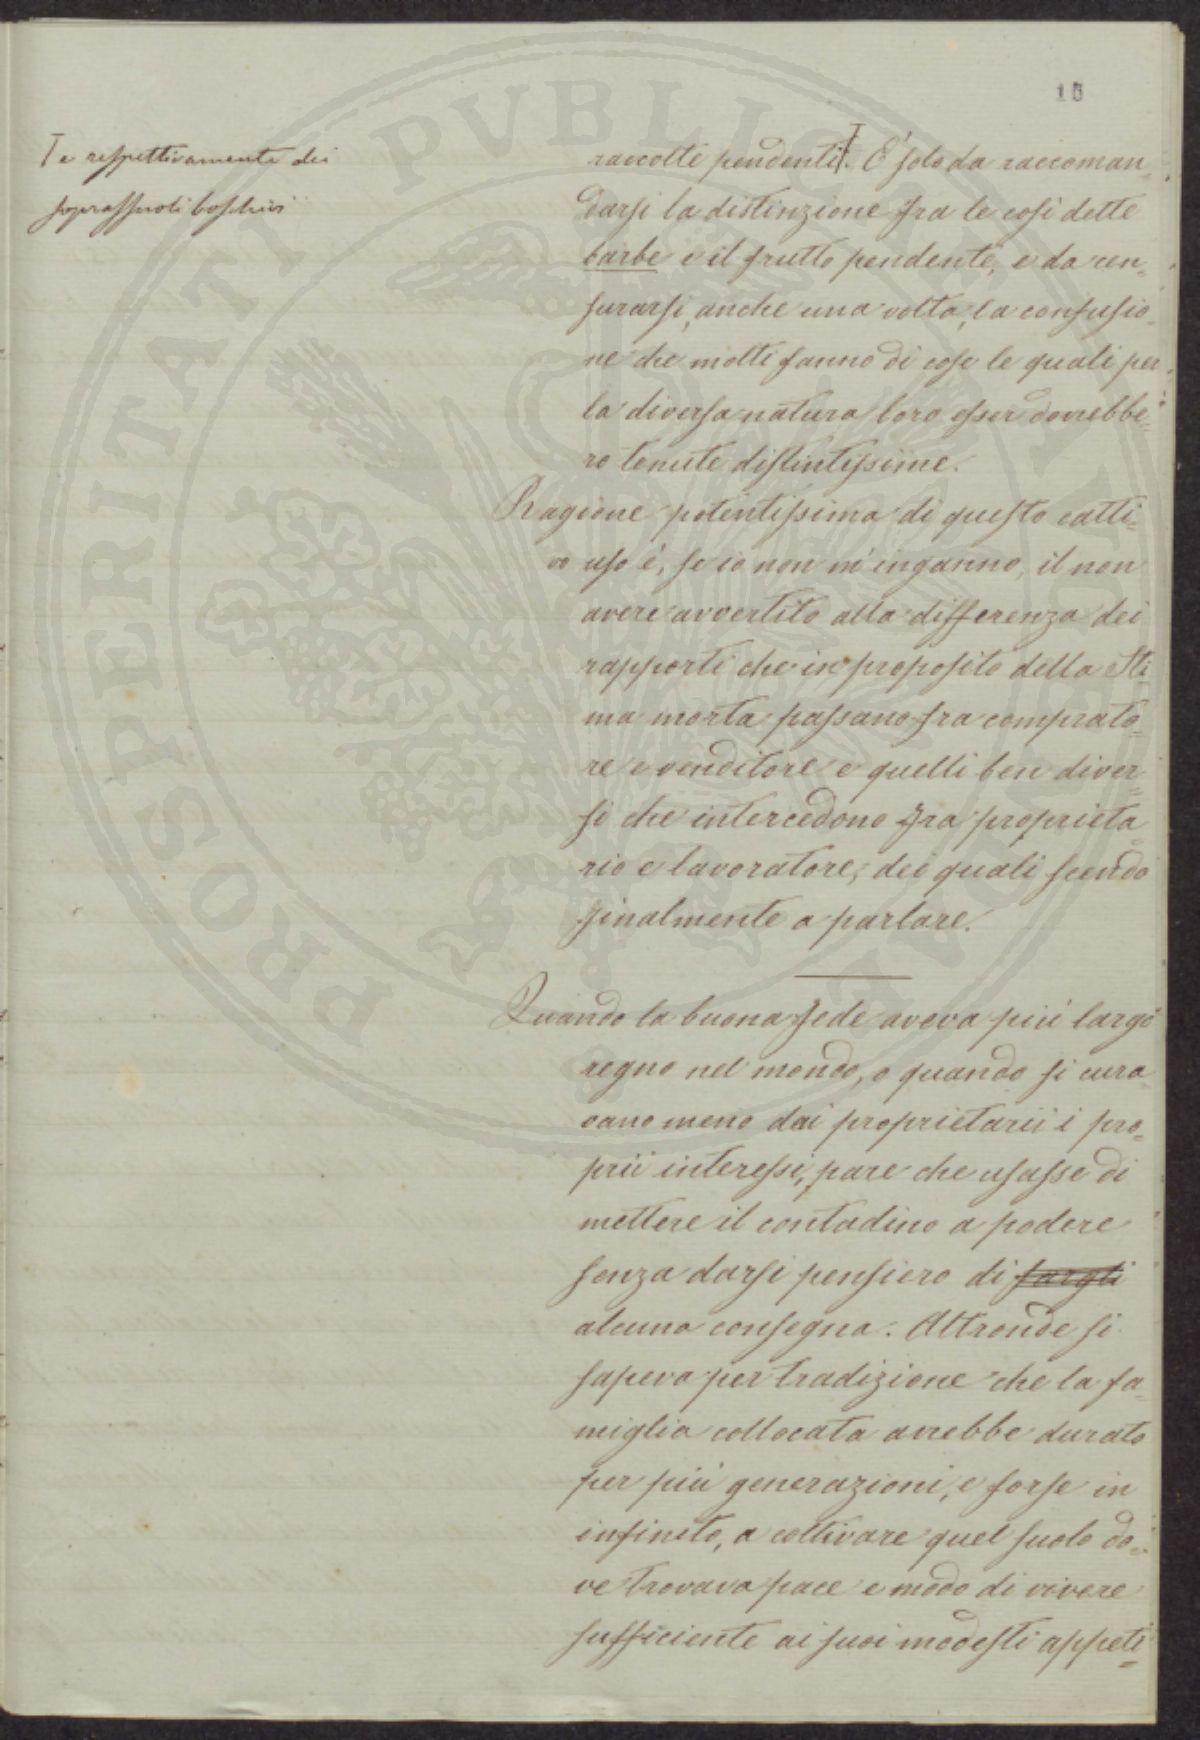 15
T e respettivamente dei
soprassuoli boschivi
raccolti pendenti T. E' solo da raccoman-
darsi la distinzione fra le così dette
barbe e il frutto pendente, e da cen-
surarsi, anche una volta, la confusio-
ne che molti fanno di cose le quali per
la diversa natura loro esser dovrebbe-
ro tenute distintissime.
Ragione potentissima di questo catti-
vo uso è, se io non m'inganno, il non
avere avvertito alla differenza dei
rapporti che in proposito della Sti-
ma morta passano fra comprato-
re e venditore e quelli ben diver-
si che intercedono fra proprieta-
rio e lavoratore; dei quali scendo
finalmente a parlare.
Quando la buona fede aveva più largo
regno nel mondo, o quando si cura-
vano meno dai proprietarii i pro-
prii interessi, pare che usasse di
mettere il contadino a podere
senza darsi pensiero di fargli
alcuna consegna. Altronde si
sapeva per tradizione che la fa-
miglia collocata avrebbe durato
per più generazioni, e forse in
infinito, a coltivare quel suolo do-
ve trovava pace e modo di vivere
sufficiente ai suoi modesti appeti-
PROSPERITATI PUBLICAE AUGENDAE